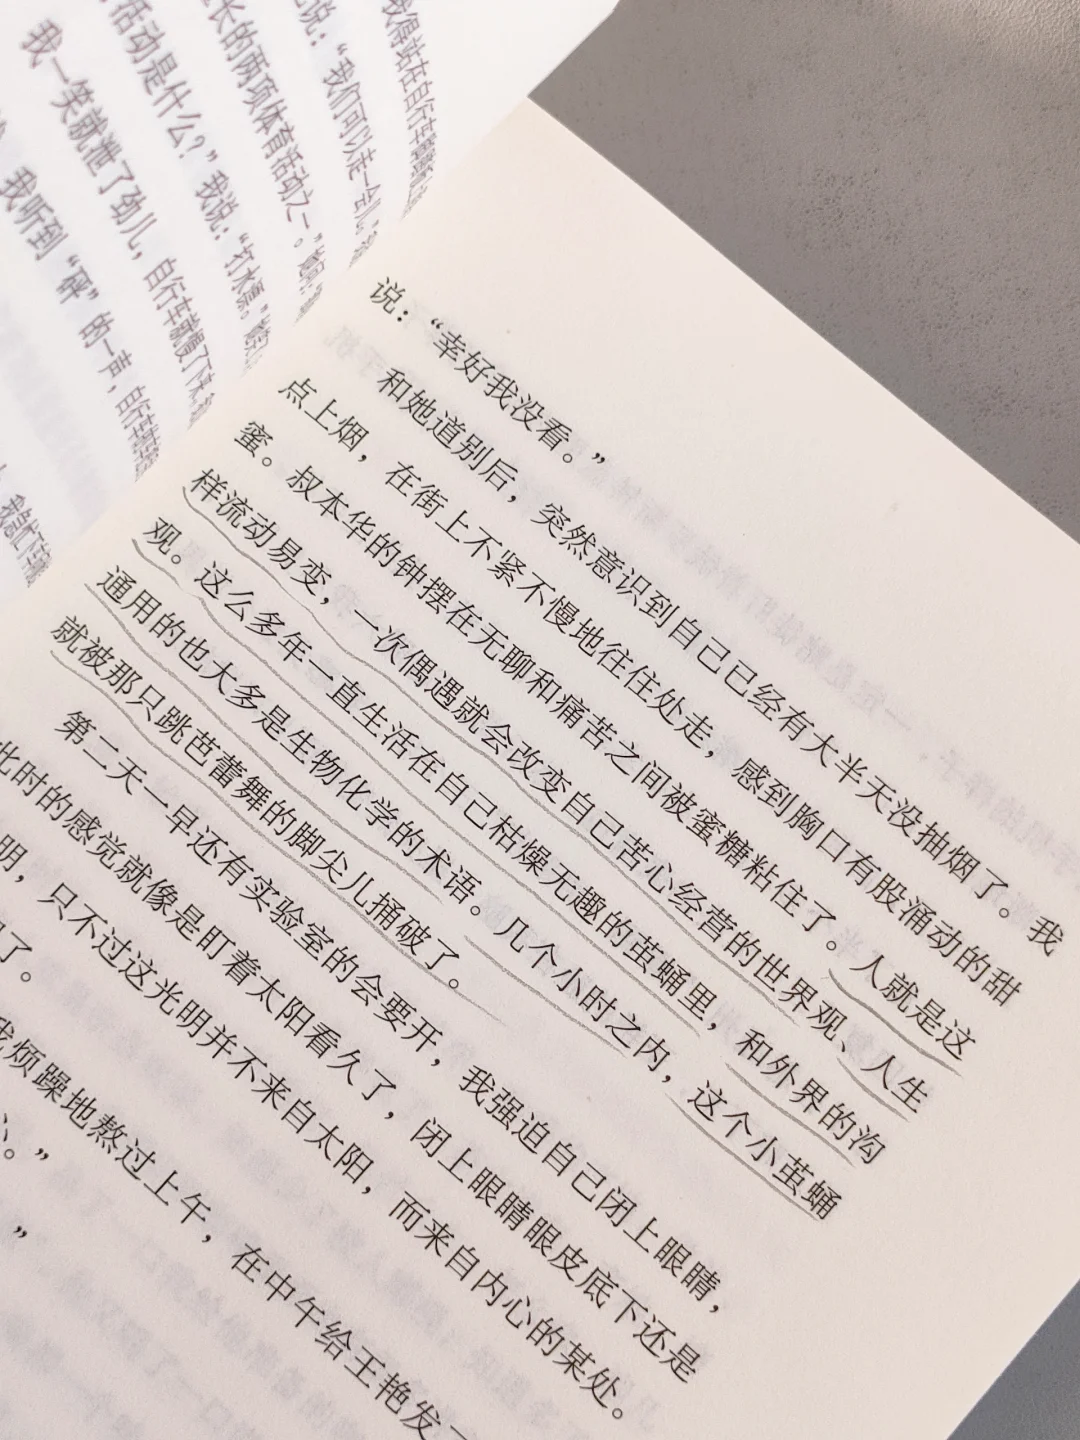 我得站在自行车
说：“我们可以走一会儿。
长的两项体育活动之一。”
活动是什么？”我说：“打水漂。”
我一笑就泄了劲儿，自行车就慢了下来，
我听到“砰”的一声，自行车
说：“幸好我没看。”
和她道别后，突然意识到自己已经有大半天没抽烟了。我
点上烟，在街上不紧不慢地往住处走，感到胸口有股涌动的甜
蜜。叔本华的钟摆在无聊和痛苦之间被蜜糖粘住了。人就是这
样流动易变，一次偶遇就会改变自己苦心经营的世界观、人生
观。这么多年一直生活在自己枯燥无趣的茧蛹里，和外界的沟
通用的也大多是生物化学的术语。几个小时之内，这个小茧蛹
就被那只跳芭蕾舞的脚尖儿捅破了。
第二天一早还有实验室的会要开，我强迫自己闭上眼睛，
此时的感觉就像是盯着太阳看久了，闭上眼睛眼皮底下还是
明，只不过这光明并不来自太阳，而来自内心的某处。
了。
我烦躁地熬过上午，在中午给王艳发
。”
”